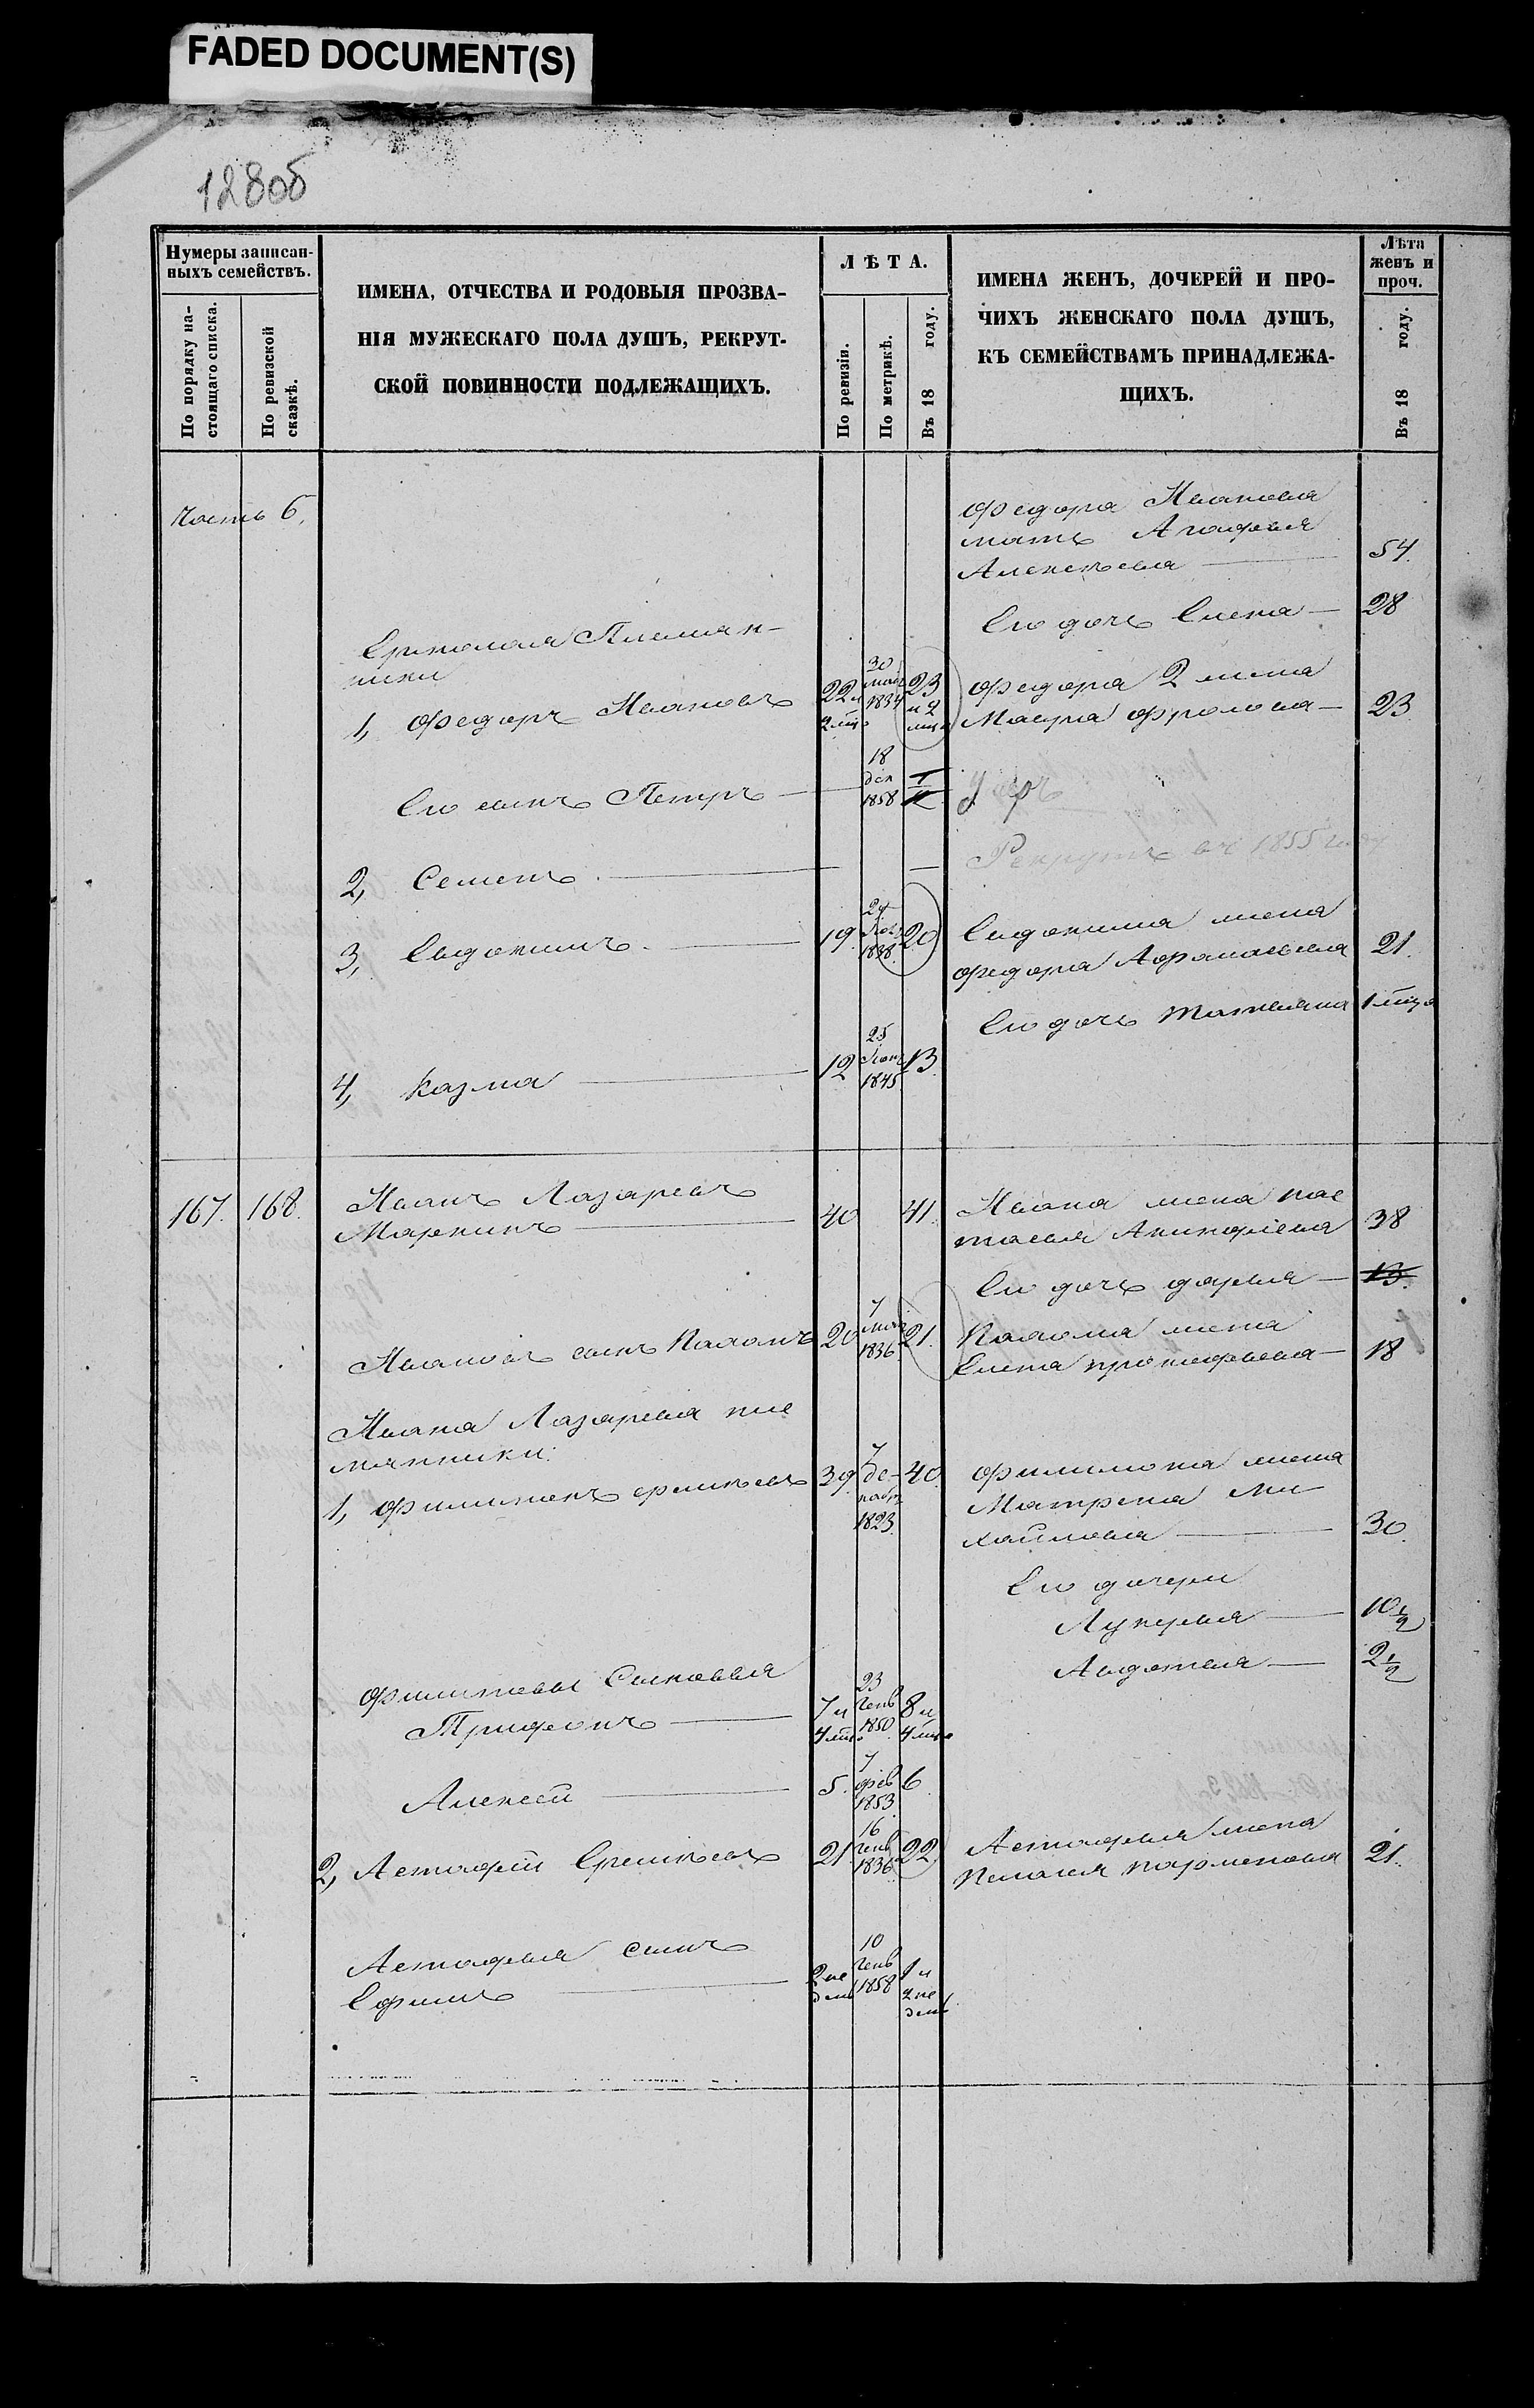 FADED DOCUMENT(S)
128об
Нумеры записан-
ныхъ семействъ.
По порядку на-
стоящаго списка.
По ревизской
сказкѣ.
ИМЕНА, ОТЧЕСТВА И РОДОВЫЯ ПРОЗВА-
НІЯ МУЖЕСКАГО ПОЛА ДУШЪ, РЕКРУТ-
СКОЙ ПОВИННОСТИ ПОДЛЕЖАЩИХЪ.
ЛѢТА.
По ревизіи.
По метрикѣ.
Въ 18 году.
ИМЕНА ЖЕНЪ, ДОЧЕРЕЙ И ПРО-
ЧИХЪ ЖЕНСКАГО ПОЛА ДУШЪ,
КЪ СЕМЕЙСТВАМЪ ПРИНАДЛЕЖА-
ЩИХЪ.
Лѣта
женъ и
проч.
Въ 18 году.
Часть 6.
Федора Иванова
мать Агафья
Алексѣева 54.
Его дочь Елена 28
Ермолая Племян-
ники
1, Федоръ Ивановъ 22 и 2 мца 30 мая 1834 23 и 2 мца
Федора 2 жена
Мавра Фролова 23
Его сынъ Петръ 18 дек 1858
Умеръ
2, Семенъ
Рекрутъ въ 1855 году
3, Евдокимъ 19. 1838. 20
Евдокима жена
Федора Афанасьева 21.
Его дочь Татьяна 1 мца
4, Казма 12 25 1845. 13
167. 168.
Иванъ Лазаревъ
Маркинъ 40 41.
Ивана жена нас
тасья Аникѳіева 38
Его дочь дарья 13.
Ивановъ сынъ Пахомъ 20 7 мая 1836 21.
Пахома жена
Елена прокофьева 18
Ивана Лазарева пле
мянники:
1, Филимонъ еремѣевъ 39. 7 де-кабр 1823. 40
Филимона жена
Матрена Ми
хайлова 30.
Его дочери
Лукерья 10 1/2
Авдотья 2 1/2
Филимоновы Сыновья
Трифонъ 7 и 4 мца 23 генв 1850 8 и 4 мца
Алексей 5. 7 фев 1853 6
2, Астафій Еремѣевъ 21. 16 генв 1836 22
Астафья жена
Пелагея парменова 21.
Астафья сынъ
Ефимъ 2 не дели 10 генв 1858 1 и 2 не дели